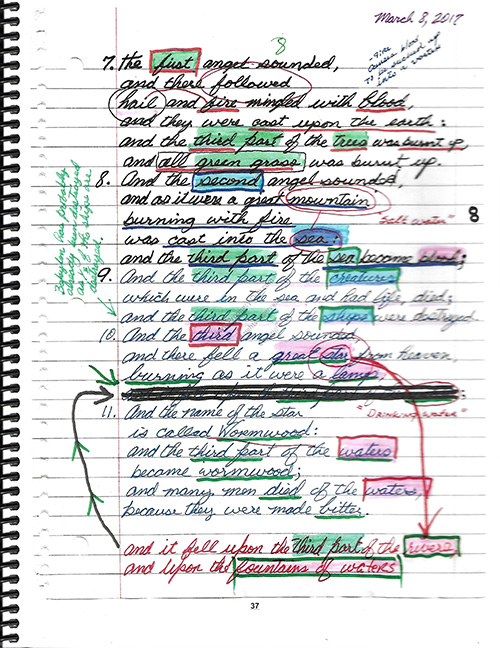 March 8, 2017
8
7. the first angel sounded,
and there followed
hail and fire mingled with blood,
and they were cast upon the earth:
and the third part of the trees was burnt up
and all green grass was burnt up.
8. And the second angel sounded,
and as it were a great mountain
burning with fire
"Salt water"
8
was cast into the sea:
and the third part of the sea became blood;
9. And the third part of the creatures
which were in the sea and had life, died;
and the third part of the ships were destroyed.
10. And the third angel sounded
and there fell a great star from heaven,
burning as it were a lamp
11. And the name of the star
"DRINKING WATER"
is called Wormwood:
and the third part of the waters
became wormwood;
and many men died of the waters,
because they were made bitter.
and it fell upon the third part of the rivers
and upon the fountains of waters
37